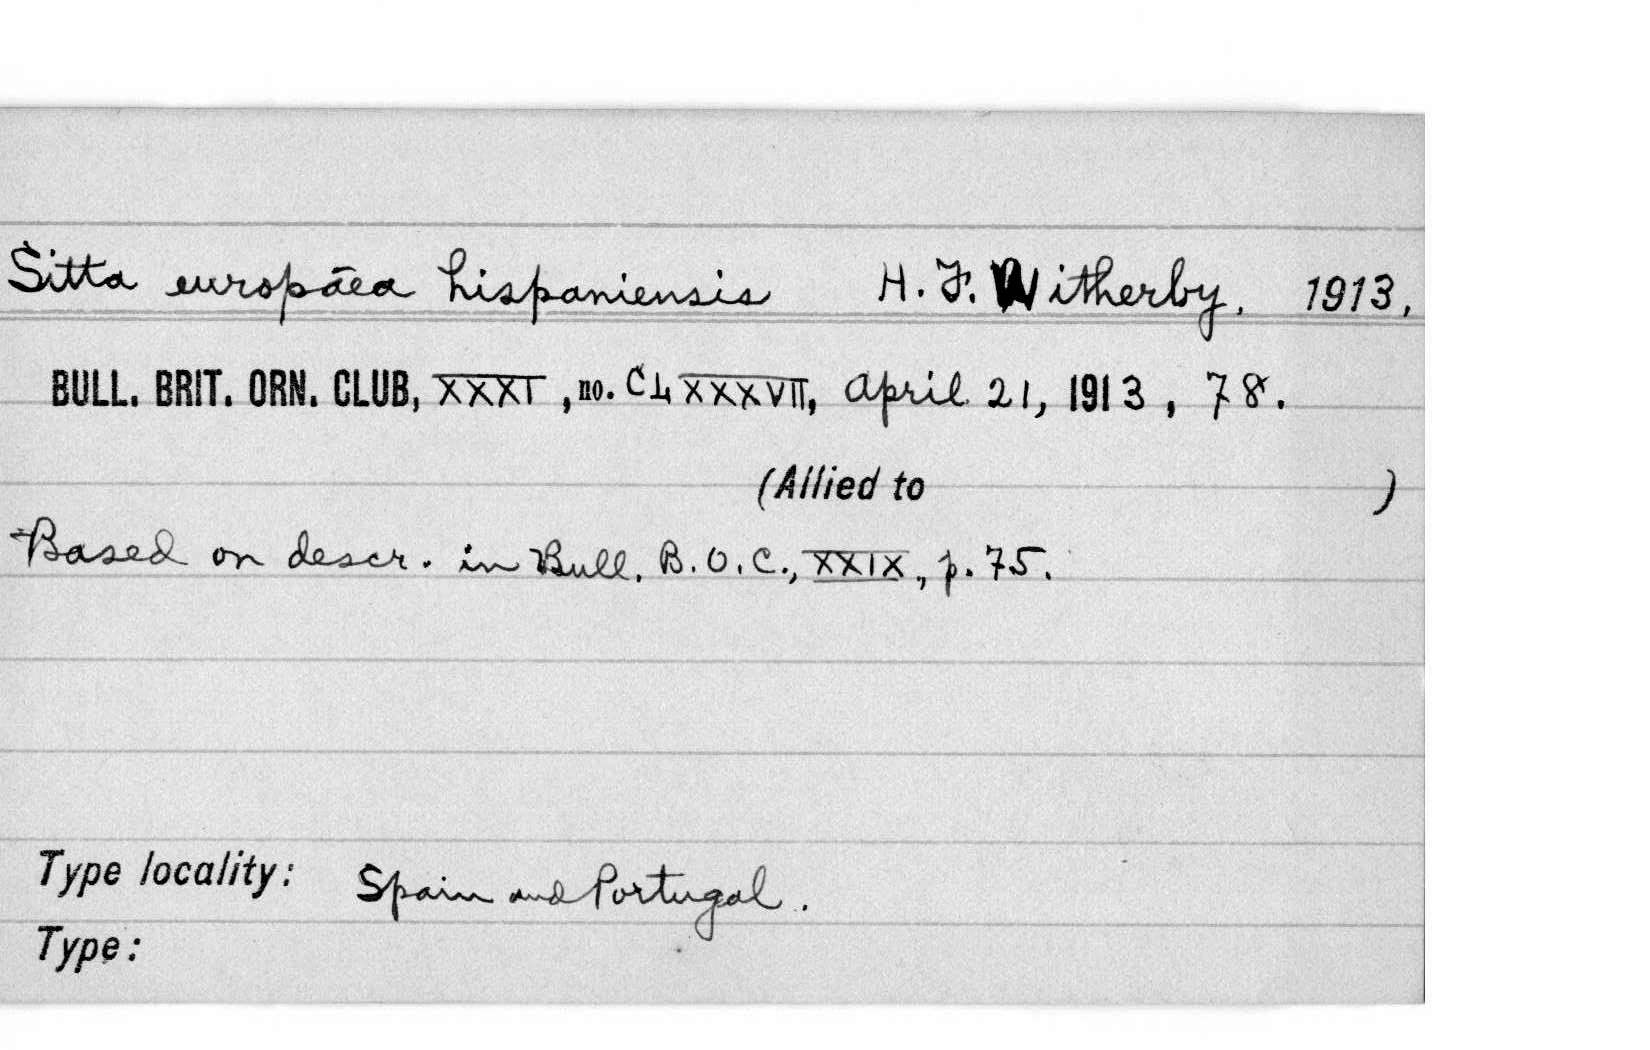 Sitta europāea hispaniensis H. F. Witherby. 1913.
BULL. BRIT. ORN. CLUB, XXXI, no. CLXXXVII, April 21, 1913, 78.
(Allied to )
Based on descr. in Bull. B.O.C., XXIX, p. 75.
Type locality: Spain and Portugal.
Type: